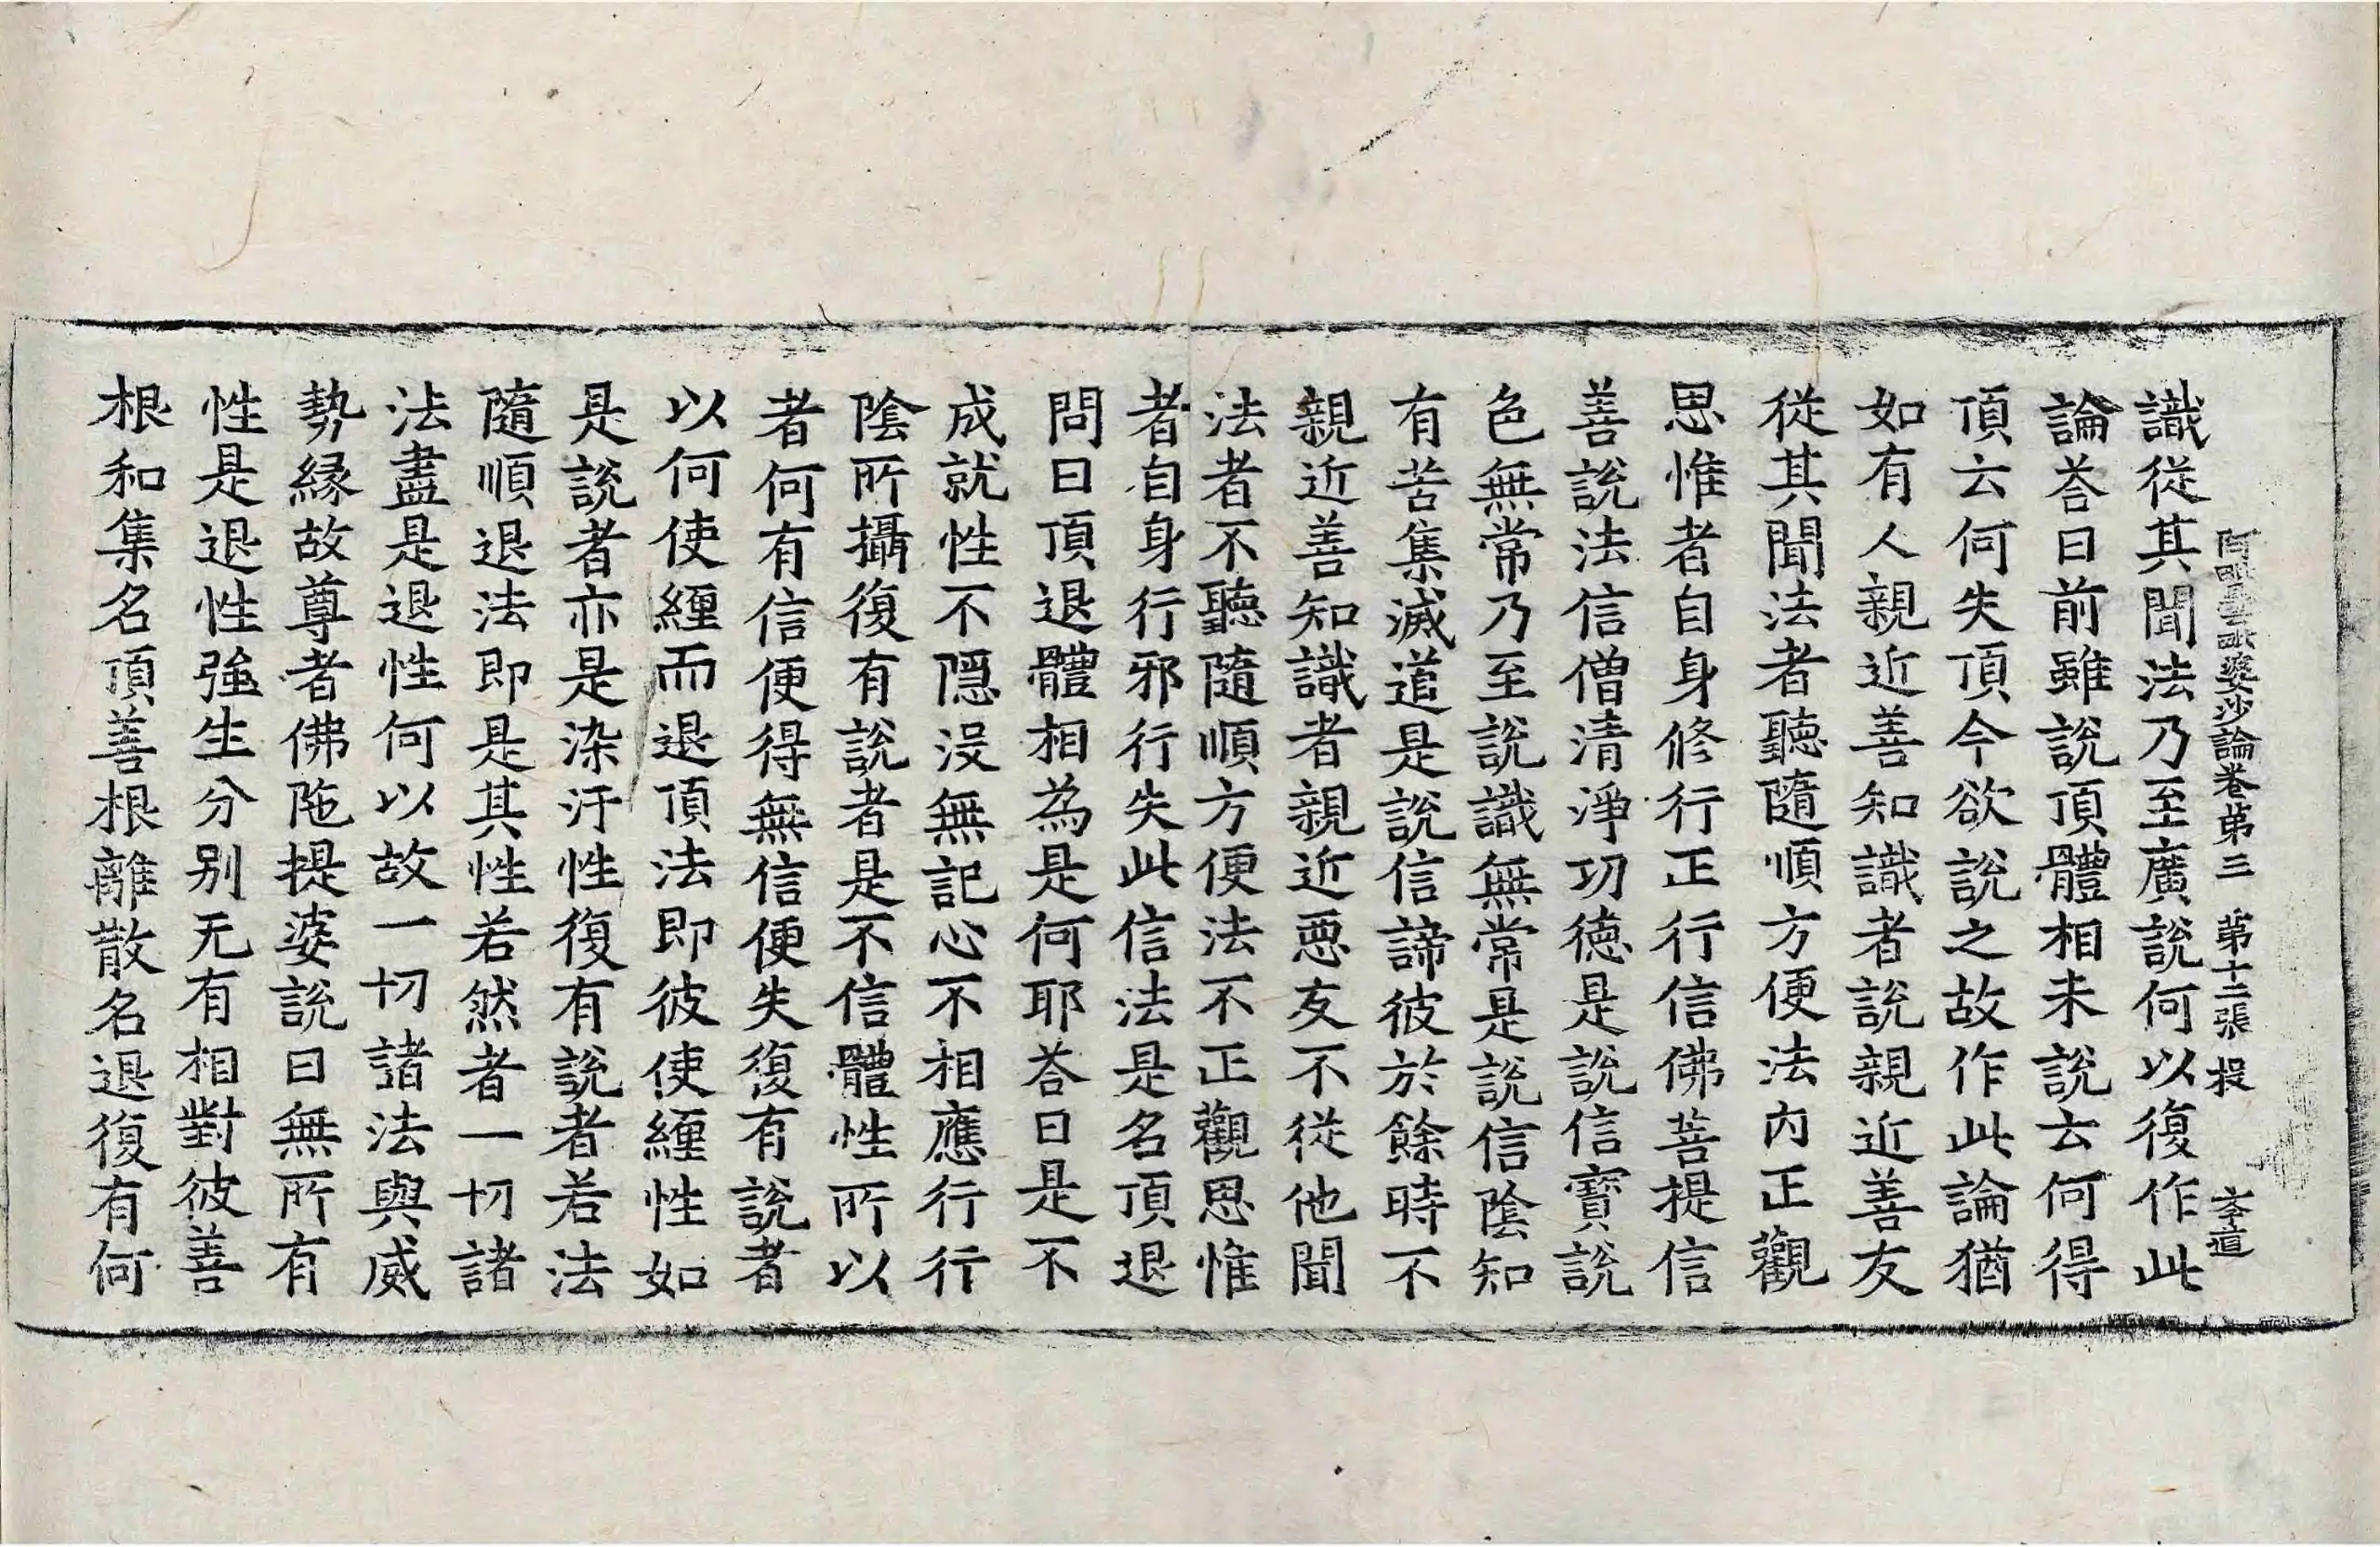 阿毗曇毗婆沙論卷第三　第十二張　投　李道
識從其聞法乃至廣說何以復作此
論荅曰前雖說頂體相未說云何得
頂云何失頂今欲說之故作此論猶
如有人親近善知識者說親近善友
從其聞法者聽隨順方便法內正觀
思惟者自身修行正行信佛菩提信
善說法信僧清淨功德是說信寶說
色無常乃至說識無常是說信陰知
有苦集滅道是說信諦彼於餘時不
親近善知識者親近惡友不從他聞
法者不聽隨順方便法不正觀思惟
者自身行邪行失此信法是名頂退
問曰頂退體相為是何耶荅曰是不
成就性不隱沒無記心不相應行行
陰所攝復有說者是不信體性所以
者何有信便得無信便失復有說者
以何使纏而退頂法即彼使纏性如
是說者亦是染汙性復有說者若法
隨順退法即是其性若然者一切諸
法盡是退性何以故一切諸法與威
勢緣故尊者佛陁提婆說曰無所有
性是退性強生分別无有相對彼善
根和集名頂善根離散名退復有何